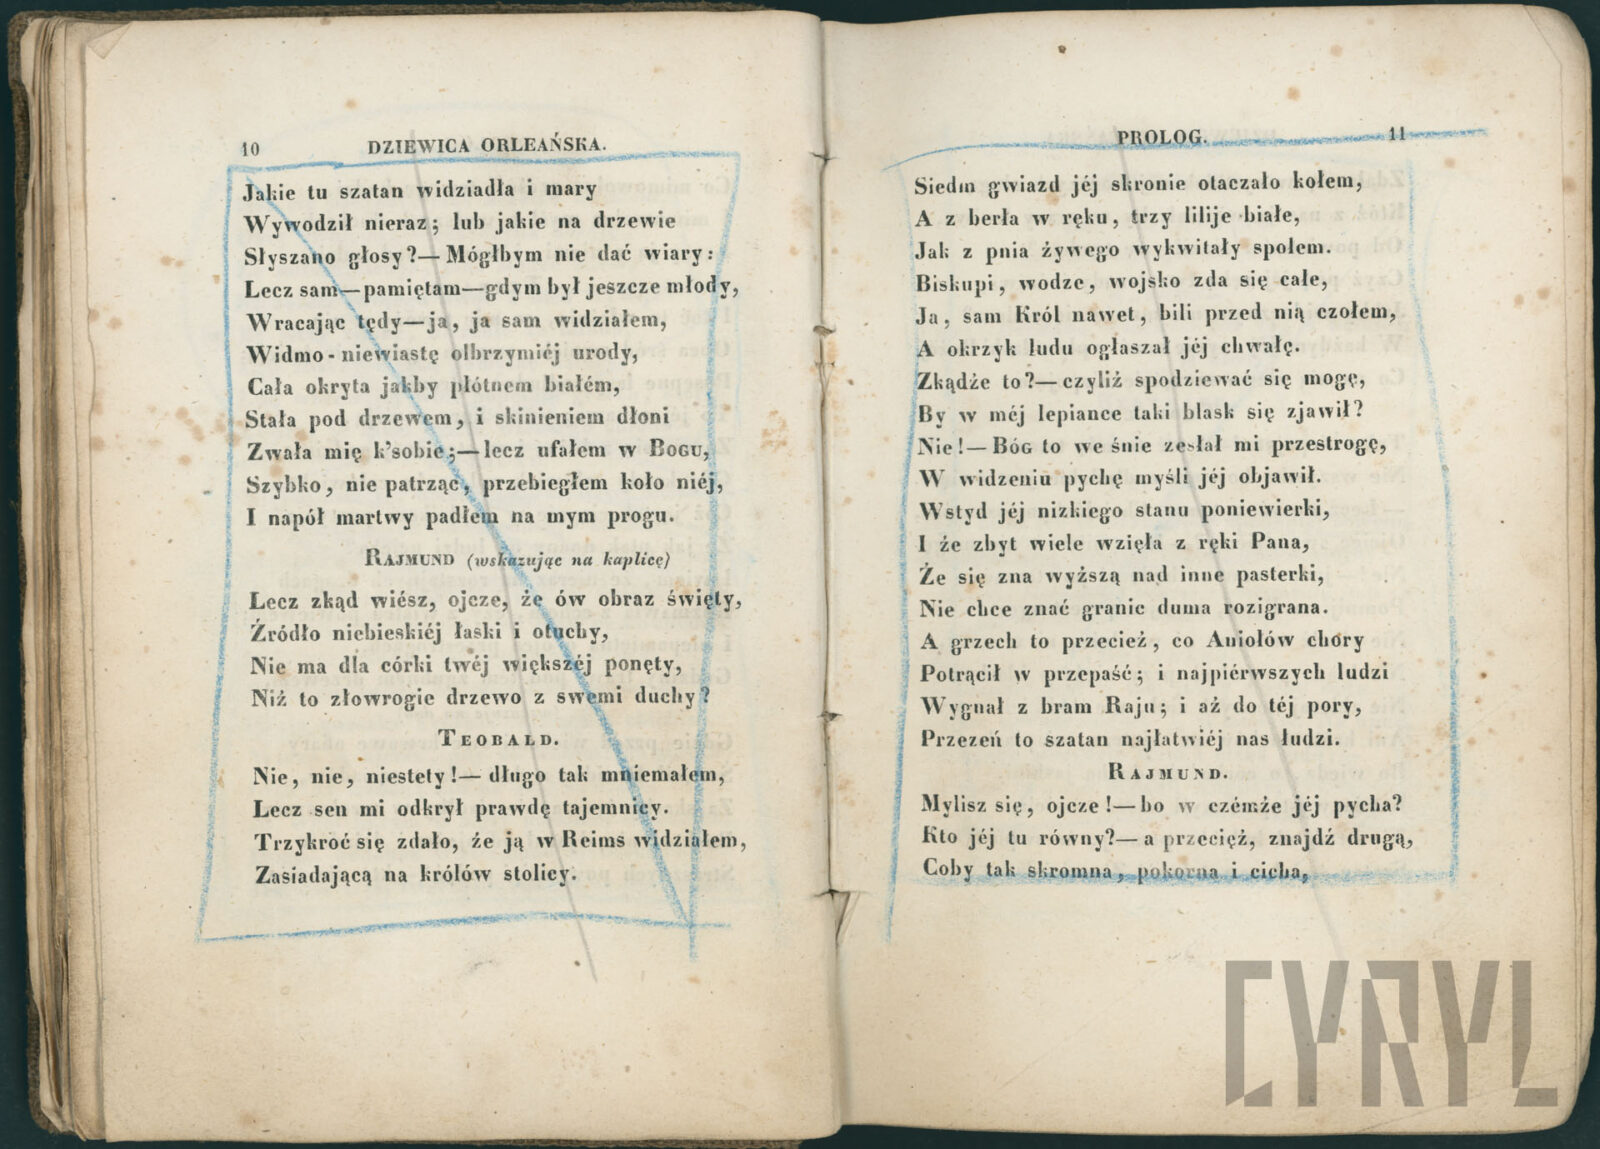 10 DZIEWICA ORLEAŃSKA.
Jakie tu szatan widziadła i mary
Wywodził nieraz; lub jakie na drzewie
Słyszano głosy?—Mógłbym nie dać wiary:
Lecz sam—pamiętam—gdym był jeszcze młody,
Wracając tędy—ja, ja sam widziałem,
Widmo-niewiastę olbrzymiéj urody,
Cała okryta jakby płótnem białém,
Stała pod drzewem, i skinieniem dłoni
Zwała mię k'sobie;—lecz ufałem w BOGU,
Szybko, nie patrząc, przebiegłem koło niéj,
I napół martwy padłem na mym progu.
RAJMUND (wskazując na kaplicę)
Lecz zkąd wiész, ojcze, że ów obraz święty,
Źródło niebieskiéj łaski i otuchy,
Nie ma dla córki twéj większéj ponęty,
Niż to złowrogie drzewo z swemi duchy?
TEOBALD.
Nie, nie, niestety!—długo tak mniemałem,
Lecz sen mi odkrył prawdę tajemnicy.
Trzykroć się zdało, że ją w Reims widziałem,
Zasiadającą na królów stolicy.
PROLOG. 11
Siedm gwiazd jéj skronie otaczało kołem,
A z berła w ręku, trzy lilije białe,
Jak z pnia żywego wykwitały społem.
Biskupi, wodze, wojsko zda się całe,
Ja, sam Król nawet, bili przed nią czołem,
A okrzyk ludu ogłaszał jéj chwałę.
Zkądże to?—czyliż spodziewać się mogę,
By w méj lepiance taki blask się zjawił?
Nie!—BÓG to we śnie zesłał mi przestrogę,
W widzeniu pychę myśli jéj objawił.
Wstyd jéj nizkiego stanu poniewierki,
I że zbyt wiele wzięła z ręki Pana,
Że się zna wyższą nad inne pasterki,
Nie chce znać granic duma rozigrana.
A grzech to przecież, co Aniołów chóry
Potrącił w przepaść; i najpiérwszych ludzi
Wygnał z bram Raju; i aż do téj pory,
Przezeń to szatan najłatwiéj nas łudzi.
RAJMUND.
Mylisz się, ojcze!—bo w czémże jéj pycha?
Kto jéj tu równy?—a przecięż, znajdź drugą,
Coby tak skromna, pokorna i cicha,
CYRYL